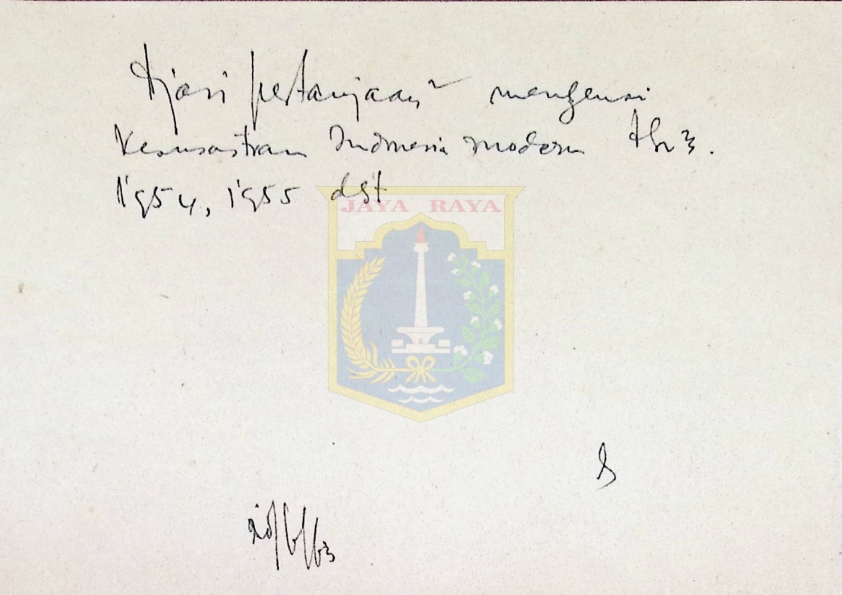 pertanjaan² mengenai
Kesusastran Indonesia modern th2 3.
1954, 1955 dst
JAYA RAYA
/6/63